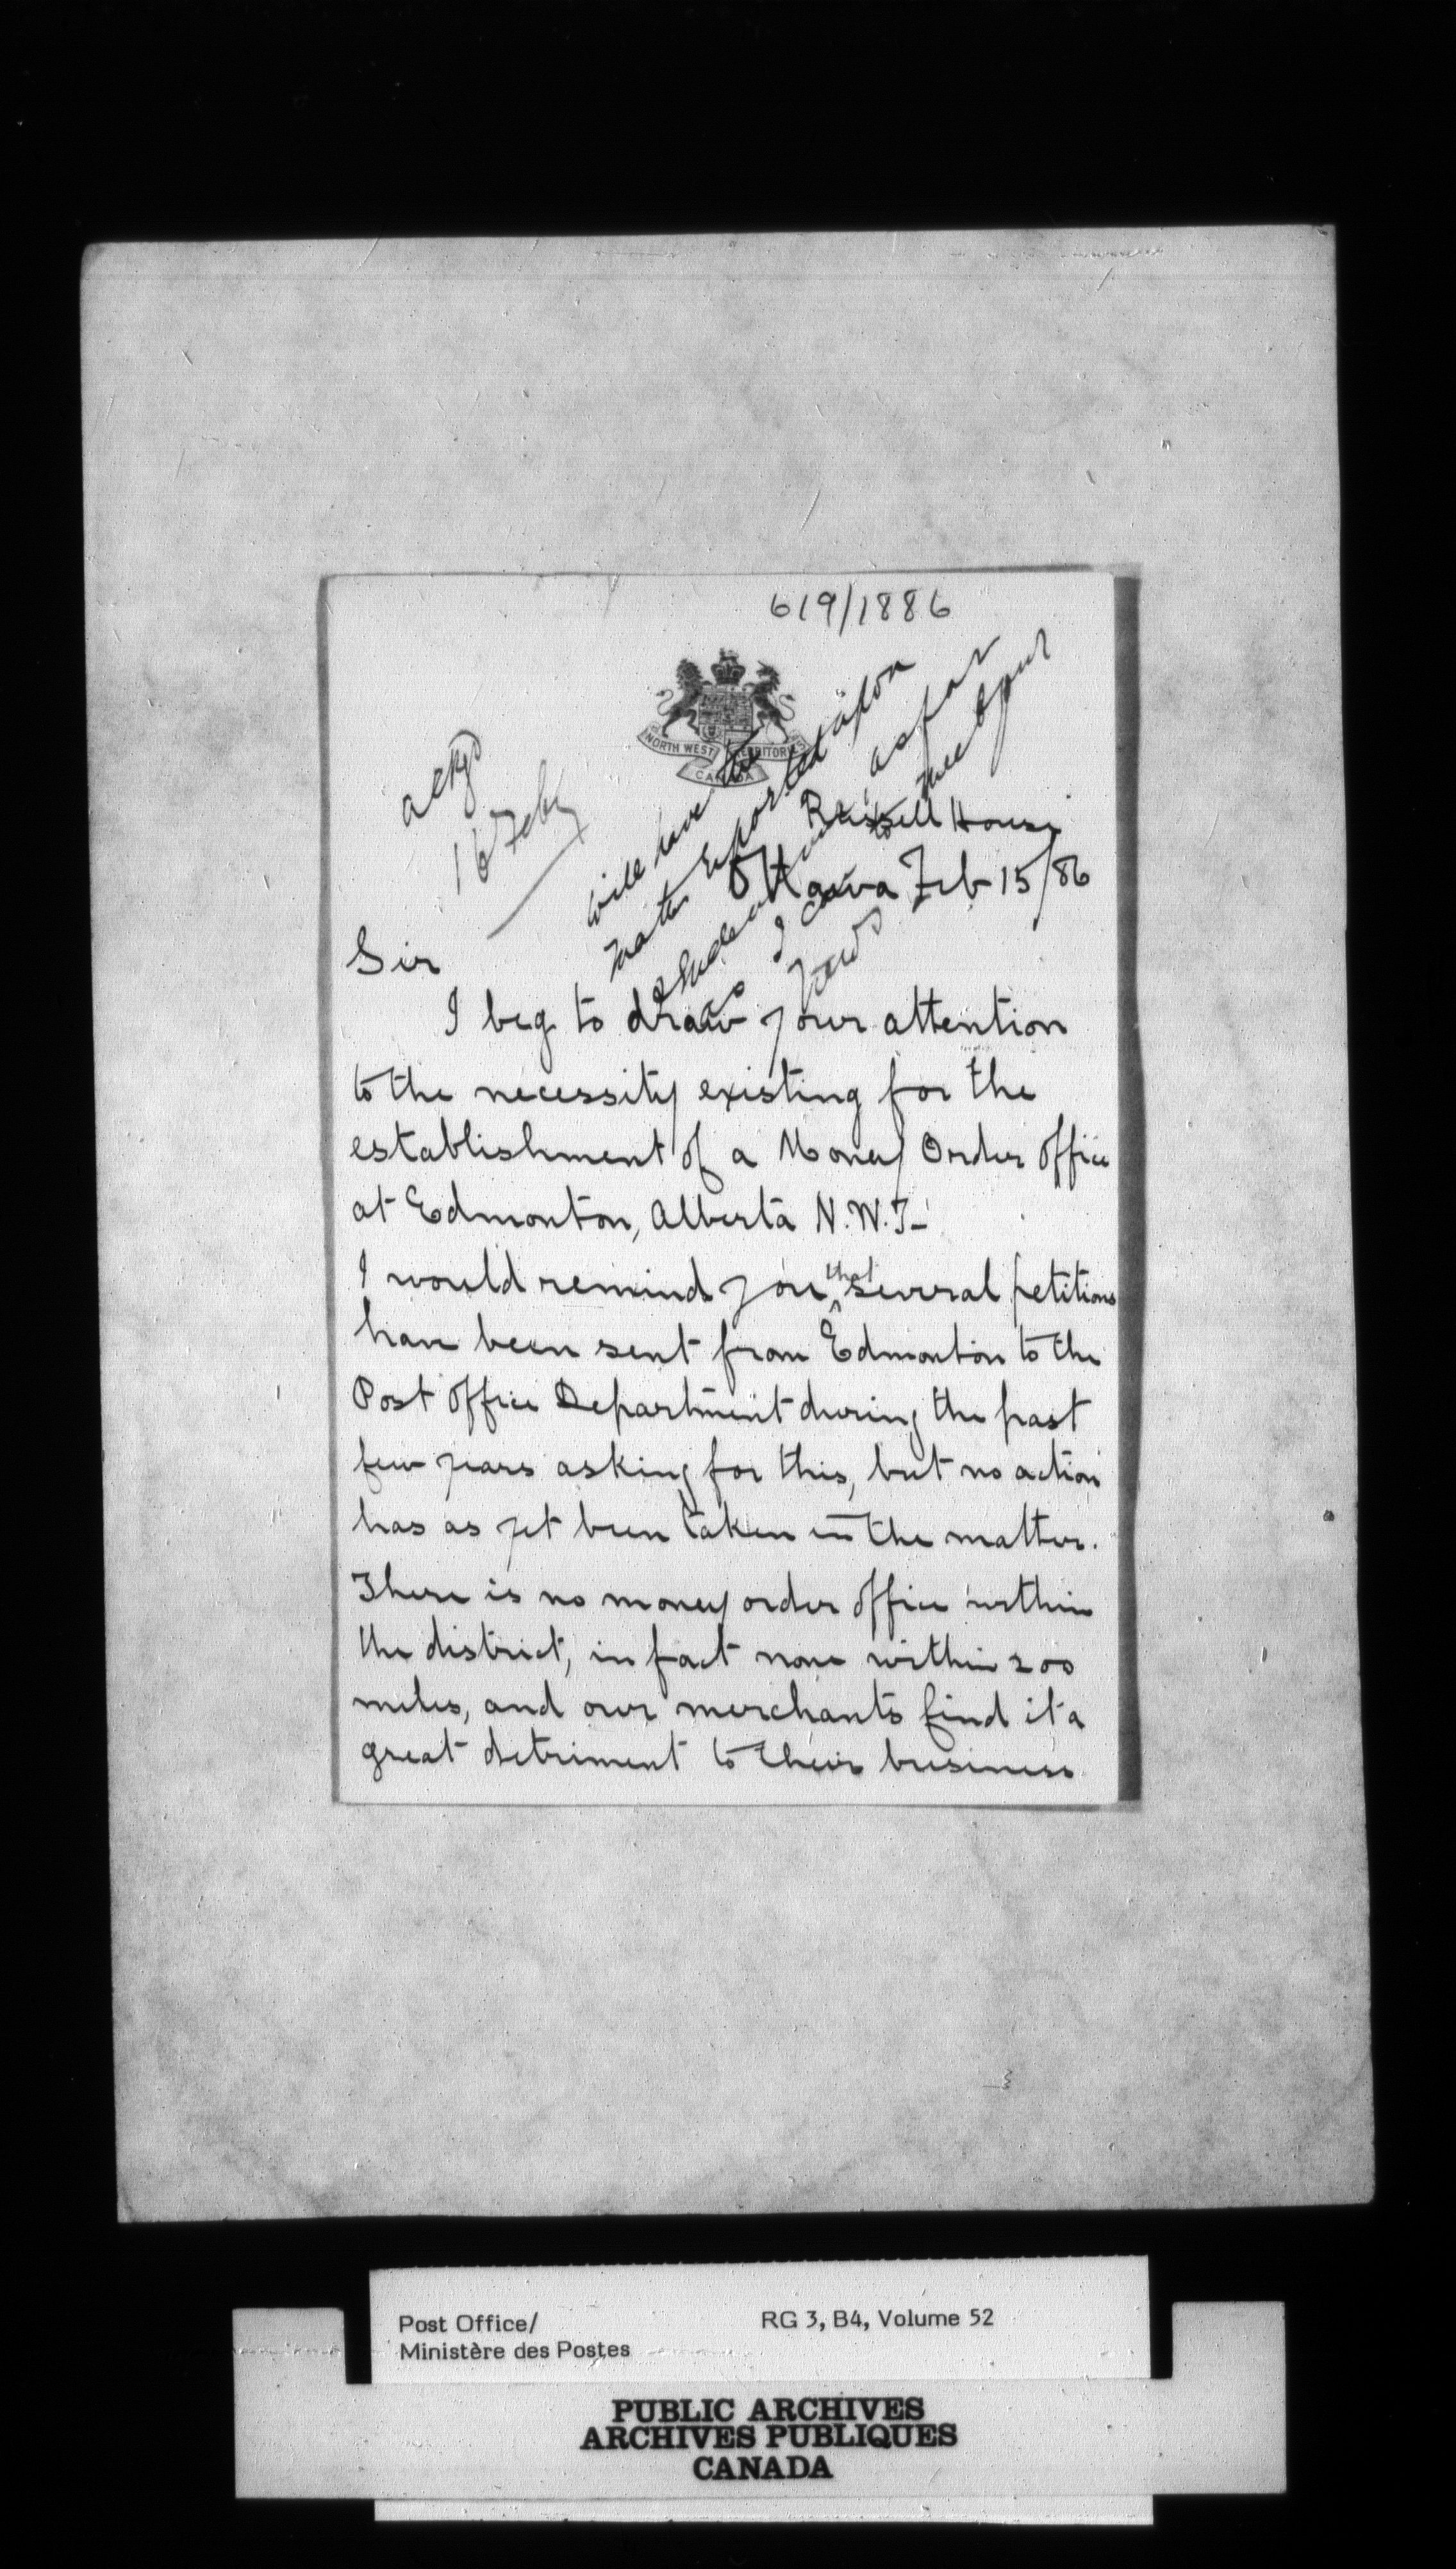 619/1886
NORTH WEST TERRITORIES
CANADA
ackgd
16 Feby
will have the
matter reported upon
& endeavour as far
as I can to meet your
views
Russell House
Ottawa Feb 15/86
Sir
I beg to draw your attention
to the necessity existing for the
establishment of a Money Order Office
at Edmonton, Alberta N.W.T-
I would remind you that several petitions
have been sent from Edmonton to the
Post Office Department during the past
few years asking for this, but no action
has as yet been taken in the matter.
There is no money order office within
the district, in fact none within 200
miles, and our merchants find it a
great detriment to their business
Post Office/
Ministère des Postes
RG 3, B4, Volume 52
PUBLIC ARCHIVES
ARCHIVES PUBLIQUES
CANADA